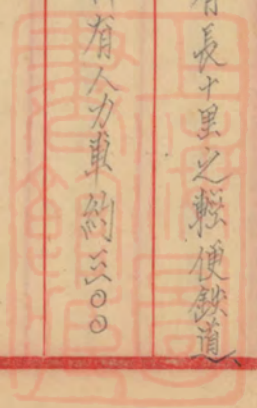 有長十里之輕便鉄道
有人力車約三〇〇